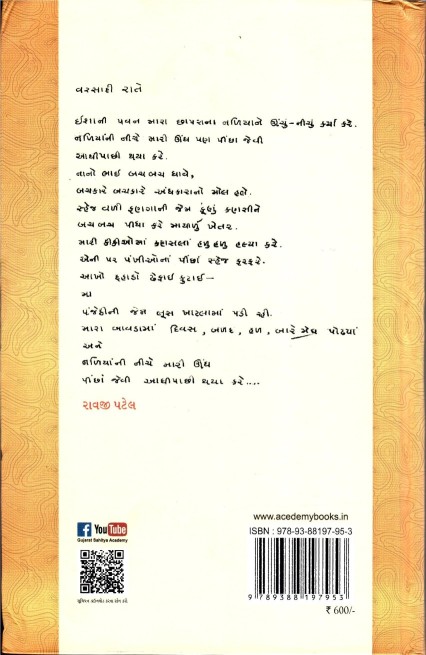 વરસાદી રાતે
ઈશાની પવન મારા છાપરાના નળિયાંને ઊંચું-નીચું કર્યા કરે.
નળિયાંની નીચે મારી ઊંઘ પણ પીંછા જેવી
આઘીપાછી થયા કરે.
નાનો ભાઈ બચ બચ ધાવે,
બચકારે બચકારે અંધકારનો મોલ હલે.
સ્હેજ વળી ફણગાની જેમ કૂણું કણસીને
બચ બચ પીધા કરે માયાળું ખેતર.
મારી કીકીઓમાં કણસલાં હળુ હળુ હલ્યા કરે.
એની પર પંખીઓનાં પીંછાં સ્હેજ ફરફરે.
આખો દહાડો ઢેફાઈ કુટાઈ—
મા
પંજેઠીની જેમ લૂસ ખાટલામાં પડી રહી.
મારા બાવડામાં દિવસ, બળદ, હળ, બારે મેઘ પોઢયાં
અને
નળિયાંની નીચે મારી ઊંઘ
પીંછાં જેવી આઘીપાછી થયા કરે....
રાવજી પટેલ
www.acedemybooks.in
f YouTube
Gujarat Sahitya Academy
ISBN : 978-93-88197-95-3
9 789388 197953
₹ 600/-